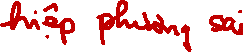 hiệp phương sai